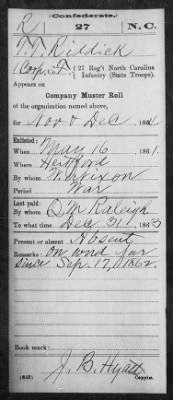 (Confederate.)
R 27 N.C.
T. T. Riddick
Corp, Co. F, 27 Reg't North Carolina
Infantry (State Troops).
Appears on
Company Muster Roll
of the organization named above,
for Nov & Dec, 1864.
Enlisted:
When May 16, 1861.
Where Hertford
By whom W Nixon
Period War
Last paid:
By whom Q.M. Raleigh
To what time Dec 31, 1863
Present or absent Absent
Remarks: On wnd fur
since Sep. 17, 1862.
Book mark:
J. B. Hyatt
(642) Copyist.